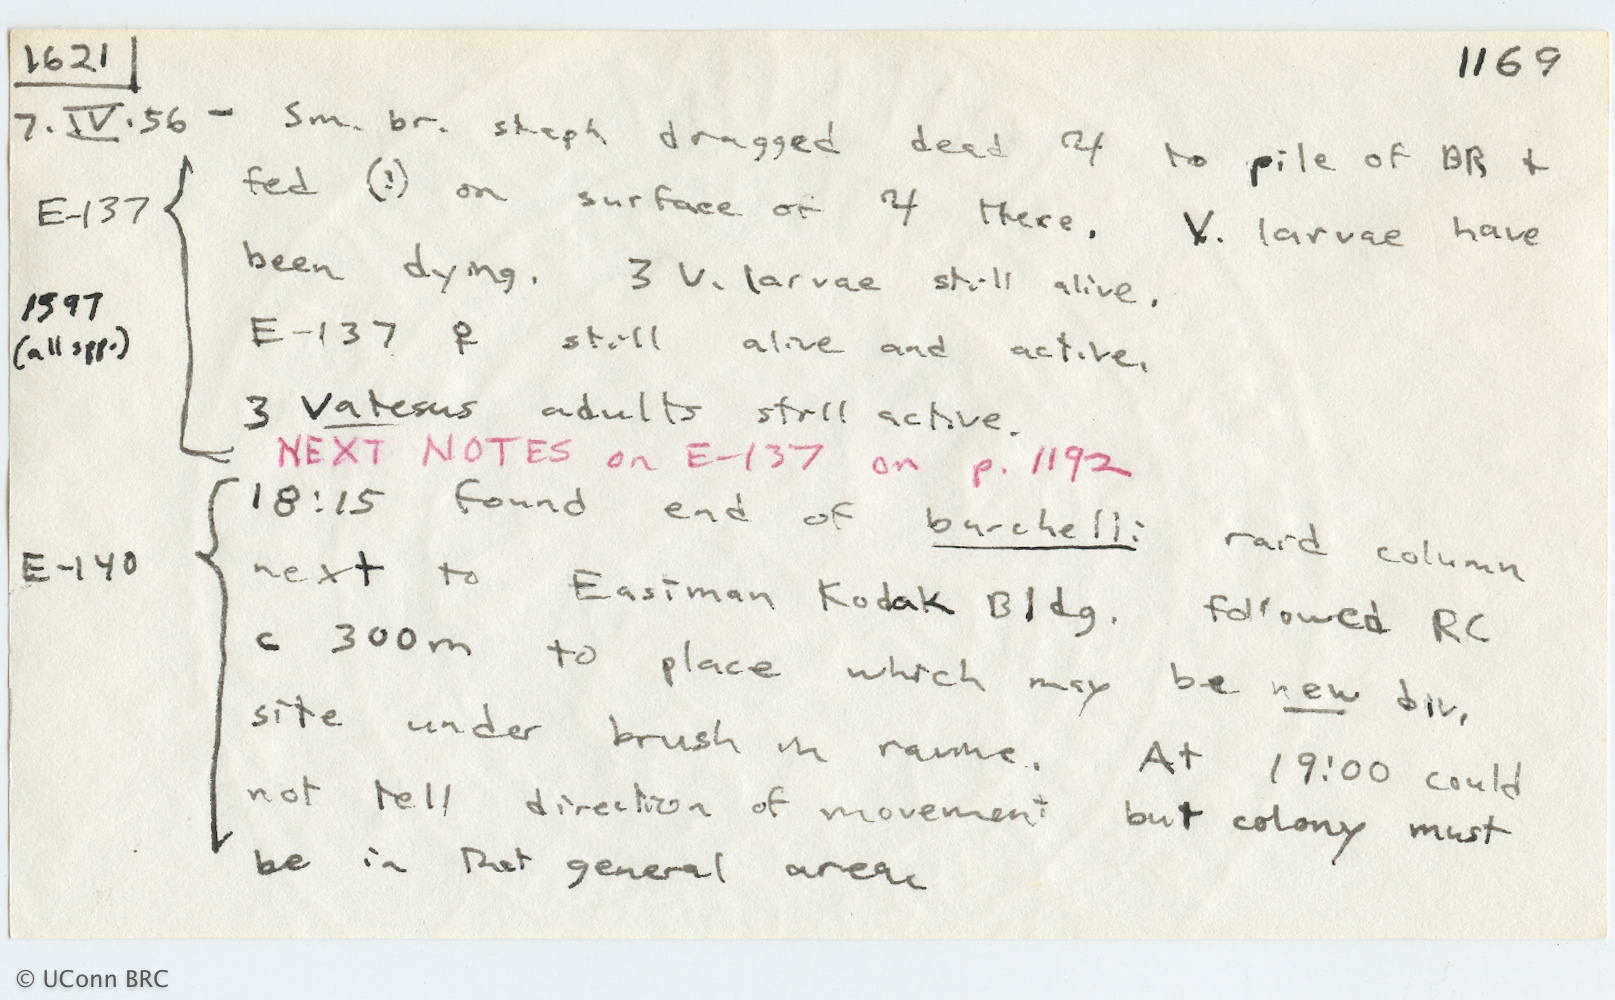 1621
1169
7.IV.56 - Sm. br. staph dragged dead ♃ to pile of BR &
E-137 fed (!) on surface of ♃ there. V. larvae have
been dying. 3 V. larvae still alive.
1597
(all spp.)
E-137 ♀ still alive and active.
3 Vatesus adults still active.
NEXT NOTES on E-137 on p. 1192
18:15 found end of burchelli raid column
E-140 next to Eastman Kodak Bldg. followed RC
c 300m to place which may be new biv.
site under brush in ravine. At 19:00 could
not tell direction of movement but colony must
be in that general area.
© UConn BRC